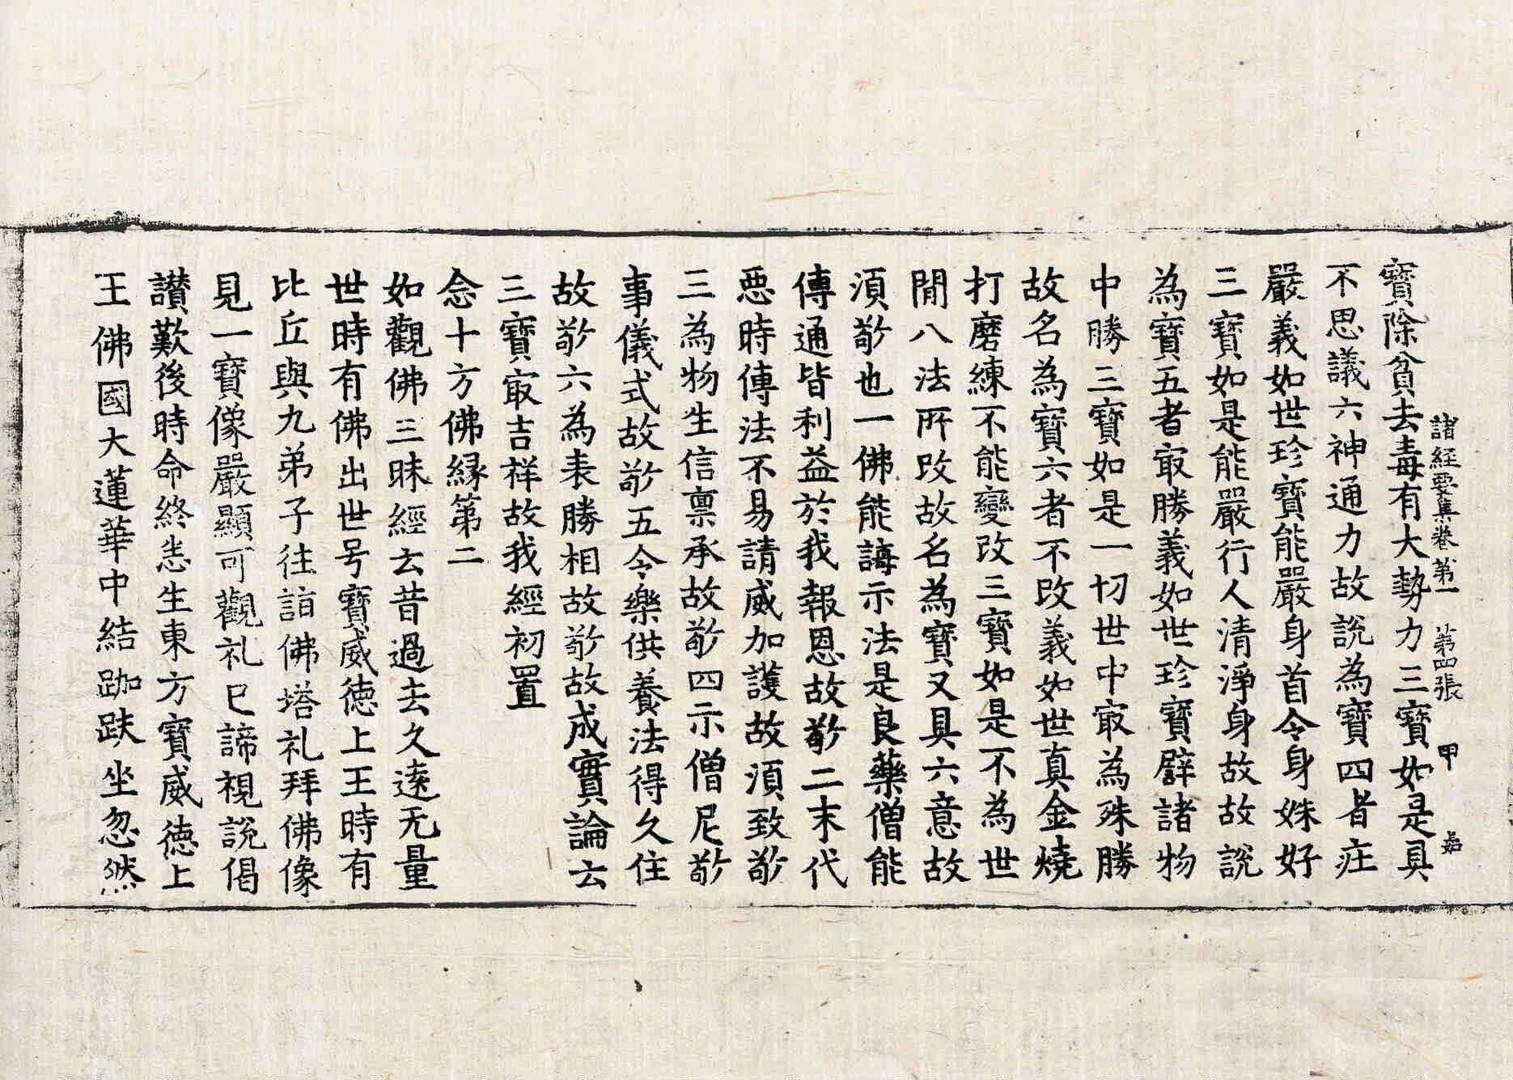 諸經要集卷第一 第四張 甲
寶除貧去毒有大勢力三寶如是具
不思議六神通力故說為寶四者莊
嚴義如世珍寶能嚴身首令身姝好
三寶如是能嚴行人清淨身故故說
為寶五者㝡勝義如世珍寶譬諸物
中勝三寶如是一切世中㝡為殊勝
故名為寶六者不改義如世真金燒
打磨練不能變改三寶如是不為世
閒八法所改故名為寶又具六意故
須敬也一佛能誨示法是良藥僧能
傳通皆利益於我報恩故敬二末代
惡時傳法不易請威加護故須致敬
三為物生信禀承故敬四示僧尼敬
事儀式故敬五令樂供養法得久住
故敬六為表勝相故敬故成實論云
三寶㝡吉祥故我經初置
念十方佛緣第二
如觀佛三昧經云昔過去久遠无量
世時有佛出世号寶威德上王時有
比丘與九弟子往詣佛塔礼拜佛像
見一寶像嚴顯可觀礼已諦視說偈
讃歎後時命終悉生東方寶威德上
王佛國大蓮華中結跏趺坐忽然